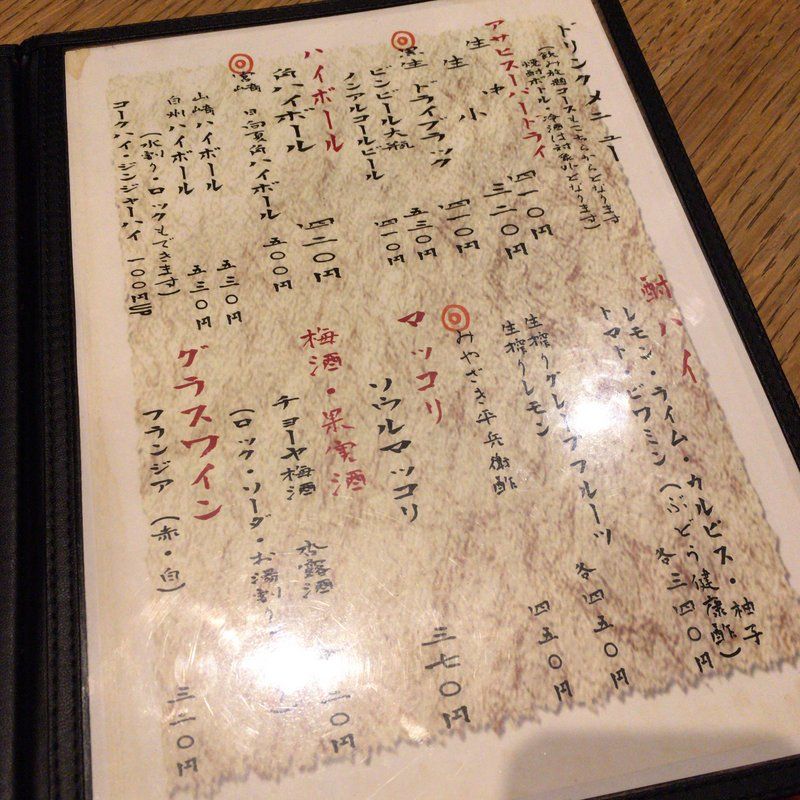 ドリンクメニュー
(飲み放題コースもこちらからとなります
焼酎ボトル・冷酒は対象外となります)
アサヒスーパードライ
生 中 四一〇円
生 小 三二〇円
黒生 ドライブラック 四一〇円
ビンビール大瓶 五三〇円
ノンアルコールビール 四一〇円
ハイボール
角ハイボール 四二〇円
宮崎 日向夏角ハイボール 五〇〇円
山崎ハイボール 五三〇円
白州ハイボール 五三〇円
(水割り・ロックもできます)
コークハイ・ジンジャーハイ 一〇〇円
酎ハイ
レモン・ライム・カルピス・柚子
トマト・ビワミン(ぶどう健康酢)
各三四〇円
生搾りグレープフルーツ
生搾りレモン 各四五〇円
みやざき平兵衛酢 四五〇円
マッコリ
ソウルマッコリ 三七〇円
梅酒・果実酒
チョーヤ梅酒 杏露酒
二〇円
(ロック・ソーダ・お湯割り
グラスワイン
フランジア (赤・白) 三二〇円